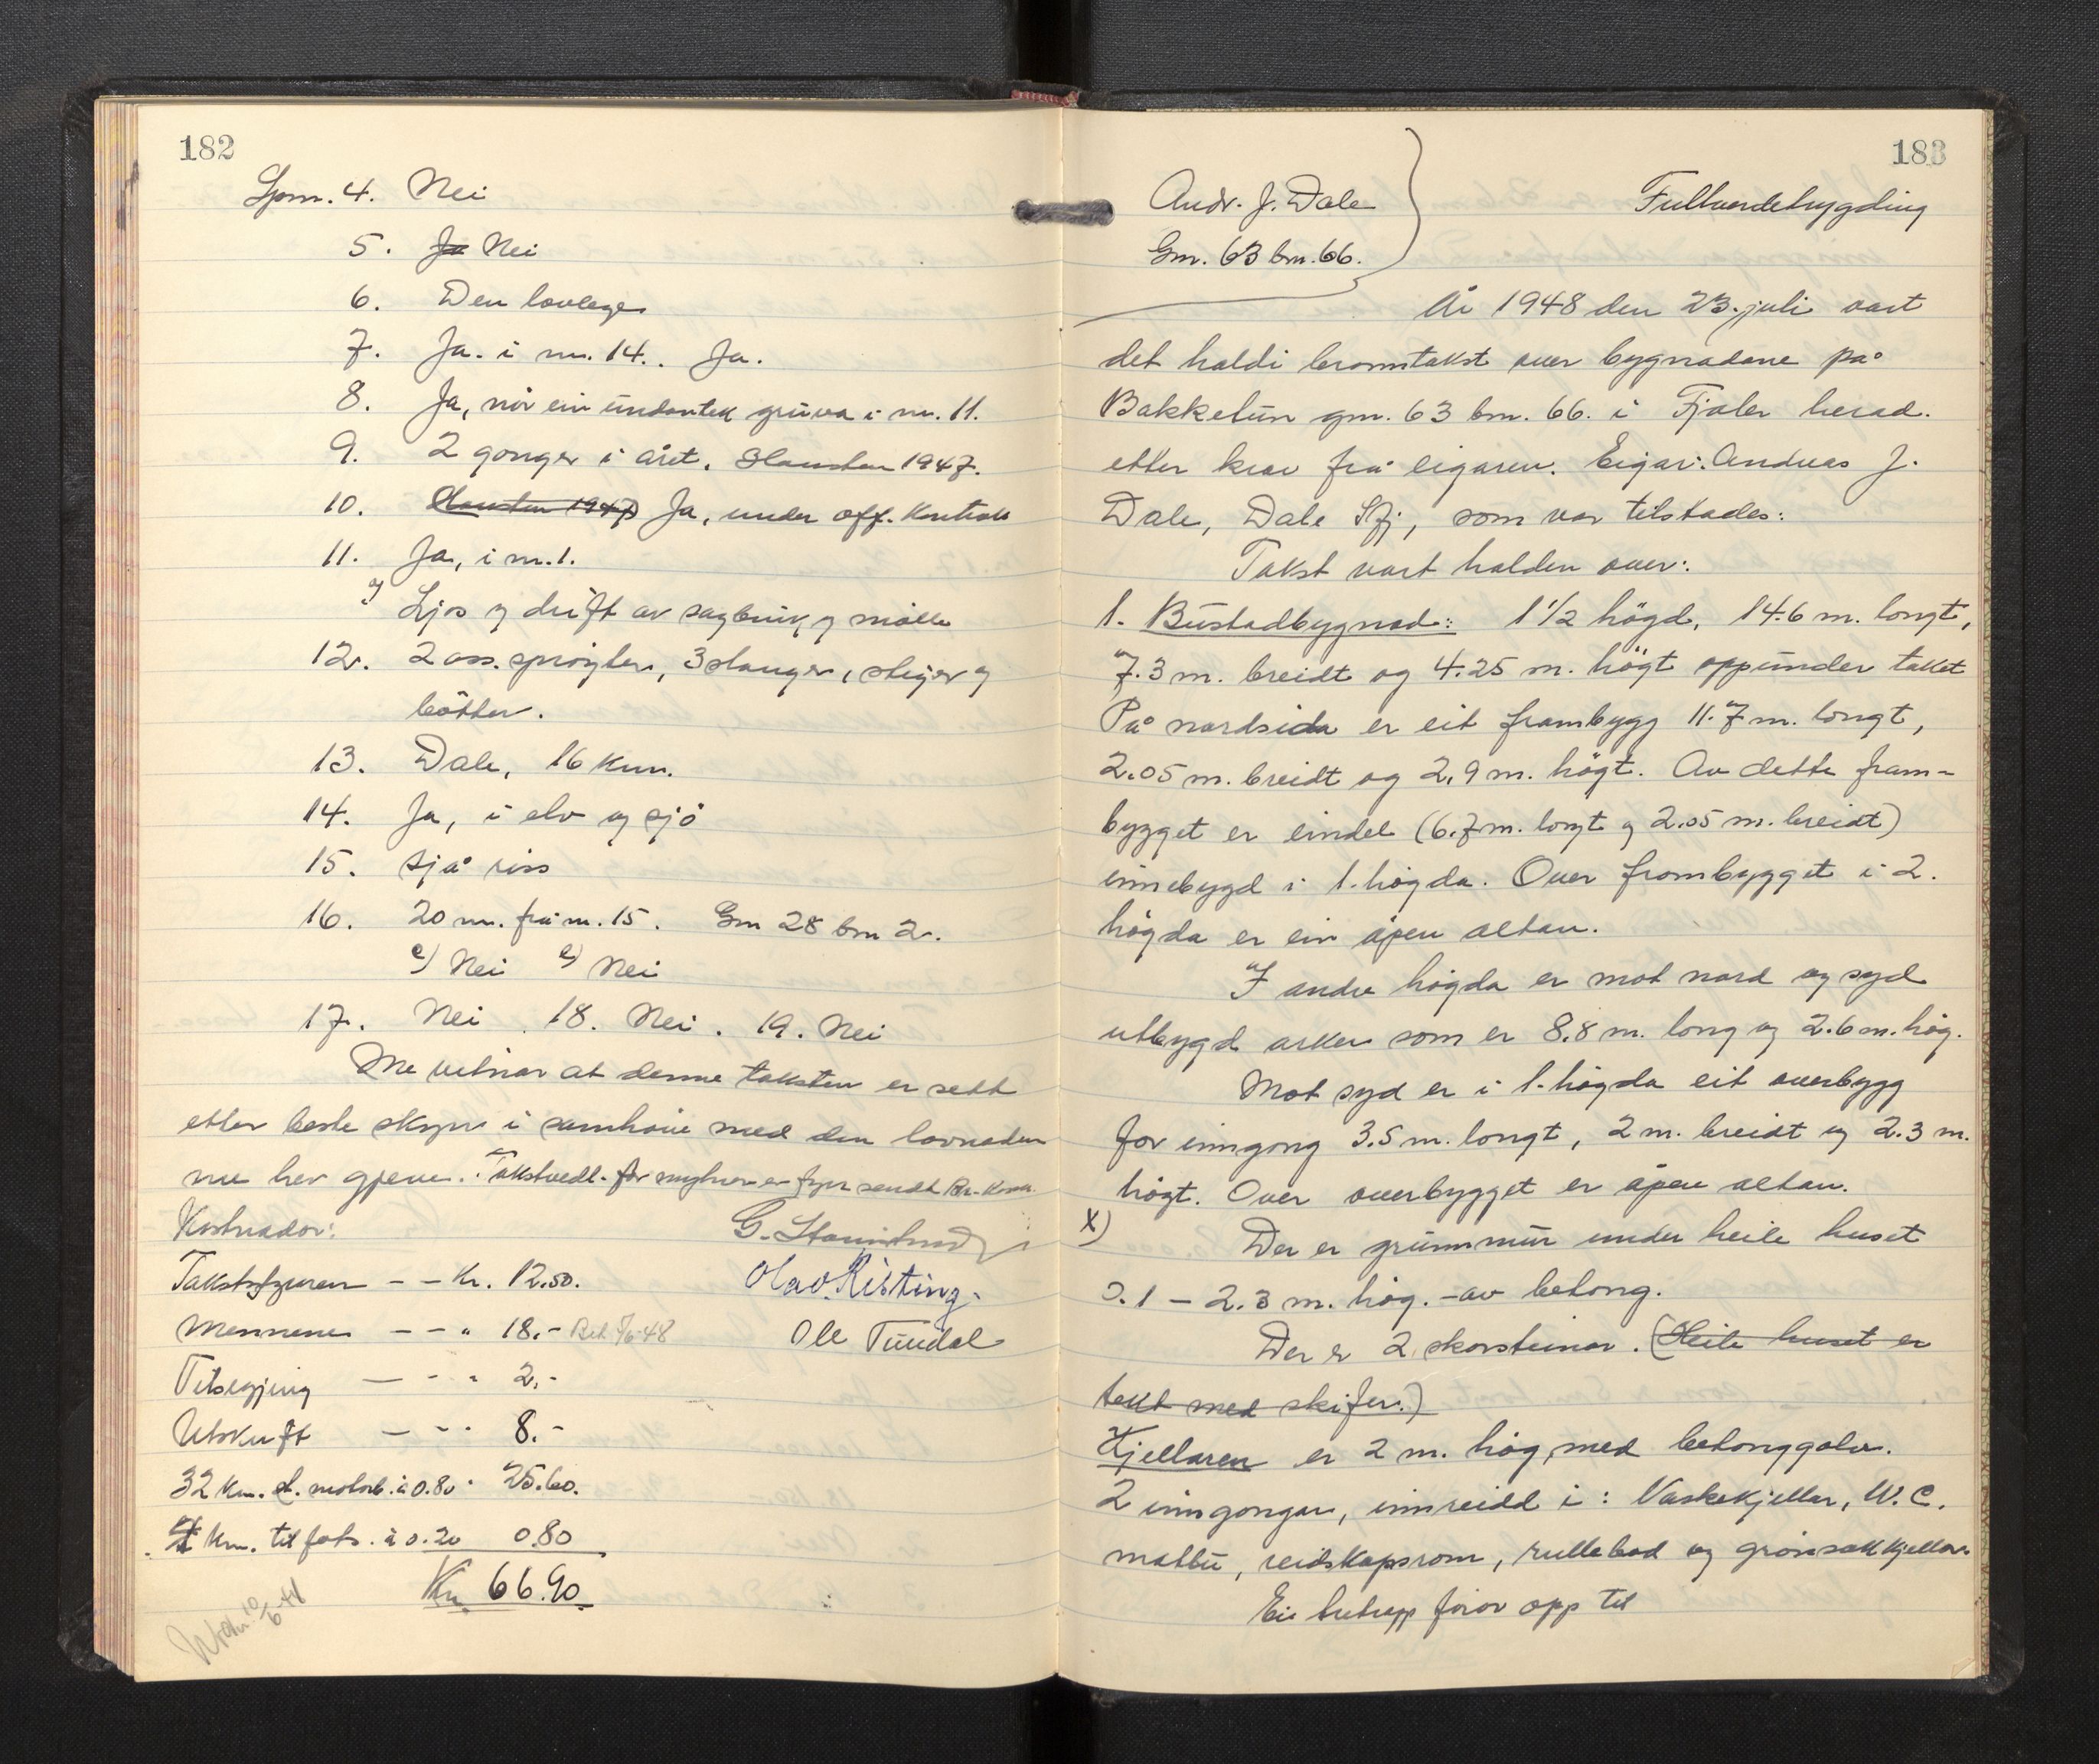 182
Spm. 4. Nei
5. Ja Nei
6. Den lovlege
7. Ja. i nr. 14. Ja.
8. Ja, når ein undantek gruva i nr. 11.
9. 2 gonger i året. Hausten 1947.
10. Hausten 1947 Ja, under off. kontroll
11. Ja, i nr. 1.
a) Ljos og drift av sagbruk og mölle
12. 2 ass. spröyter, 3 slanger, stiger og
bötter.
13. Dale, 16 km.
14. Ja, i elv og sjö
15. Sjå riss
16. 20 m. frå nr. 15. Gnr 28 bnr 2.
Nei Nei
17. Nei. 18. Nei. 19. Nei
Me vitnar at denne taksten er sett
etter beste skyn i samhöve med den lovnaden
me hev gjeve. Takstvedt. for er fyrr sendt
Kostnader:
Takststyraren - - Kr. 12.50.
Mennene - - " 18.-
Tilseging - - " 2.-
Utskrift - - " 8.-
32 km. motorb. à 0.80 " 25.60.
4 km. til fots. à 0.20 0.80
Kr. 66.90
Olav Risting.
Ole Tundal
183
Andr. J. Dale
Gnr. 63 bnr. 66.
Fullverdebygding
År 1948 den 23. juli vart
det haldi branntakst over bygnadene på
Bakketun gnr. 63 bnr. 66. i Fjaler herad.
etter krav frå eigaren. Eigar: Andreas J.
Dale, Dale Sfj, som var tilstades:
Takst vart halden over:
1. Bustadbygnad: 1 1/2 högd, 14.6 m. langt,
7.3 m. breidt og 4.25 m. högt oppunder taket
På nordsida er eit frambygg 11.7 m. langt,
2.05 m. breidt og 2.9 m. högt. Av dette fram-
bygget er eindel (6.7 m. langt og 2.05 m. breidt)
innebygd i 1. högda. Over frambygget i 2.
högda er ein åpen altan.
I andre högda er mot nord og syd
utbygd arker som er 8.8 m. lang og 2.6 m. hög.
Mot syd er i 1. högda eit overbygg
for inngong 3.5 m. langt, 2 m. breidt og 2.3 m.
högt. Over overbygget er åpen altan.
x) Der er grunnmur under heile huset
0.1 - 2.3 m. hög. - av betong.
Der er 2 skorsteinar. (Heile huset er
tekt med skifer.)
Kjellaren er 2 m. hög, med betonggolv.
2 inngonger, innreidd i: Vaskekjellar, W.C.
matbu, reidskapsrom, rullebod og grönsakkjellar.
Ei tretrapp förer opp til